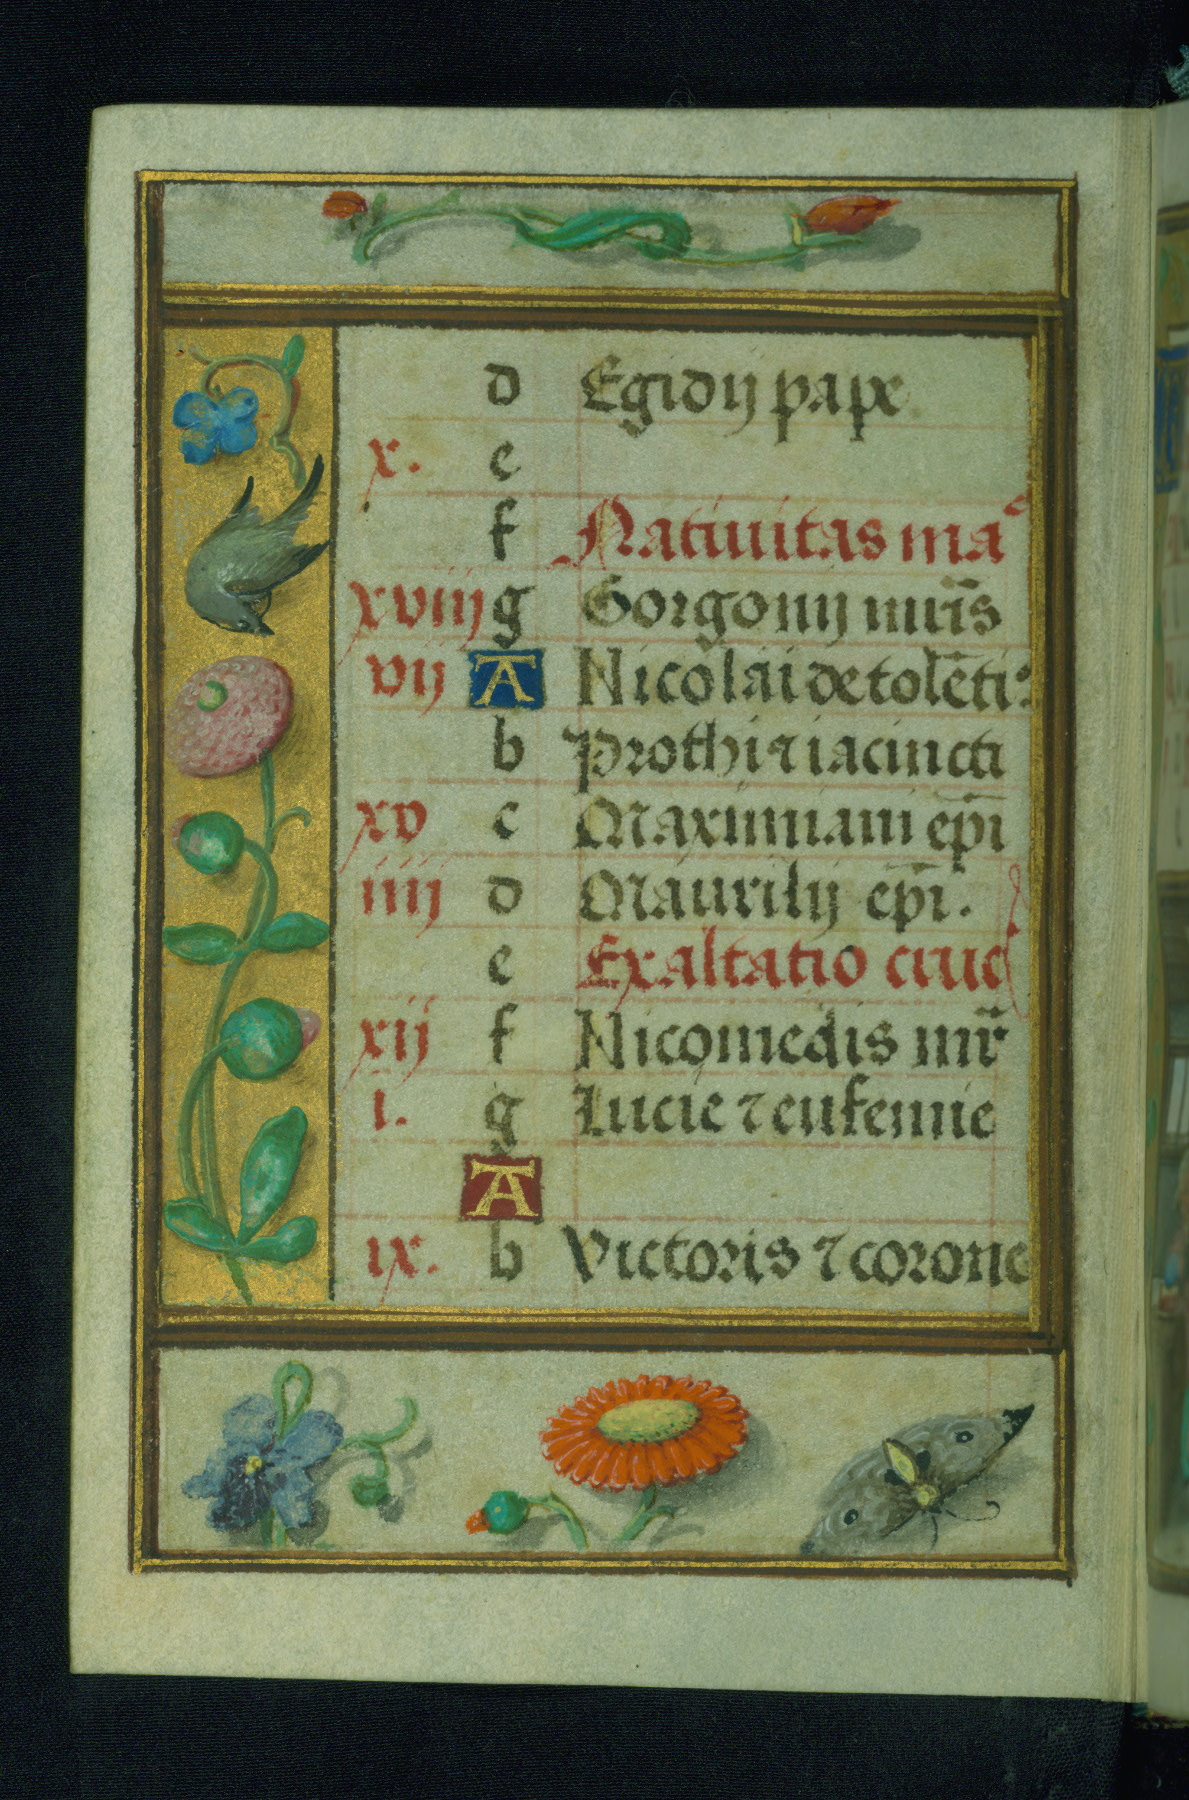 d Egidij pape
x. e
f Natiuitas mac
xviij g Gorgonij mr̄is
vij A Nicolai de tolēti:
b Prothi ⁊ iacincti
xv c Maximiani ep̄i
iiij d Maurilij ep̄i.
e Exaltatio cruc
xij f Nicomedis mr̄
i. g Lucie ⁊ eufemie
A
ix. b Victoris ⁊ corone